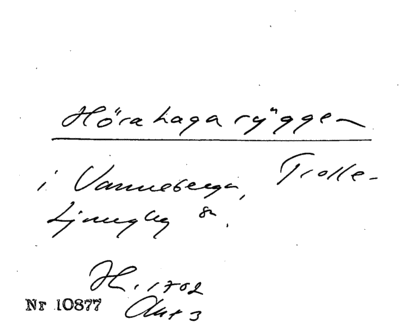 Höra haga rÿggen
i Vanneberga, Trolle-
Ljungby sn.
H. 1702
Akt 3
Nr 10877